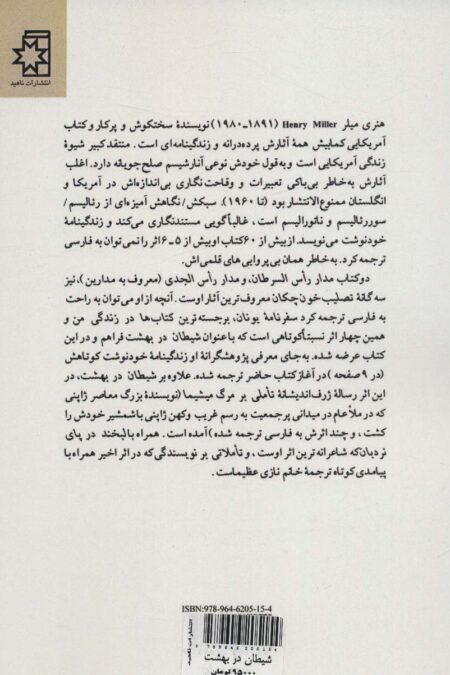 انتشارات ناهید
هنری میلر Henry Miller (۱۸۹۱-۱۹۸۰) نویسندهٔ سختکوش و پرکار و کتاب
آمریکایی کمابیش همهٔ آثارش پرده‌درانه و زندگینامه‌ای است. منتقد کبیر شیوهٔ
زندگی آمریکایی است و به‌قول خودش نوعی آنارشیسم صلح‌جویانه دارد. اغلب
آثارش به‌خاطر بی‌باکی تعبیرات و وقاحت‌نگاری بی‌اندازه‌اش در آمریکا و
انگلستان ممنوع‌الانتشار بود (تا ۱۹۶۰). سبکش/نگاهش آمیزه‌ای از رئالیسم/
سوررئالیسم و ناتورالیسم است، غالباً گویی مستندنگاری می‌کند و زندگینامهٔ
خودنوشت می‌نویسد. از بیش از ۶۰ کتاب او بیش از ۵-۶ اثر را نمی‌توان به فارسی
ترجمه کرد. به‌خاطر همان بی‌پروایی‌های قلمی‌اش.
دو کتاب مدار رأس السرطان، و مدار رأس الجدی (معروف به مدارین)، نیز
سه‌گانهٔ تصلیب خون‌چکان معروف‌ترین آثار اوست. آنچه از او می‌توان به راحت
به فارسی ترجمه کرد سفرنامهٔ یونان، برجسته‌ترین کتاب‌ها در زندگی من و
همین چهار اثر نسبتاً کوتاهی است که با عنوان شیطان در بهشت فراهم و در این
کتاب عرضه شده. به‌جای معرفی پژوهشگرانهٔ او زندگینامهٔ خودنوشت کوتاهش
(در ۹ صفحه) در آغاز کتاب حاضر ترجمه شده. علاوه بر شیطان در بهشت، در
این اثر رسالهٔ ژرف‌اندیشانهٔ تأملی بر مرگ میشیما (نویسندهٔ بزرگ معاصر ژاپنی
که در ملأعام در میدانی پرجمعیت به رسم غریب وکهن ژاپنی باشمشیر خودش را
کشت، و چند اثرش به فارسی ترجمه شده) آمده است. همراه بالبخند در پای
نردبان که شاعرانه‌ترین اثر اوست، و تأملاتی بر نویسندگی که در اثر اخیر همراه با
پیامدی کوتاه ترجمهٔ خانم نازی عظیماست.
ISBN:978-964-6205-15-4
انتشارات ناهید
شیطان در بهشت
۹۵۰۰۰ تومان